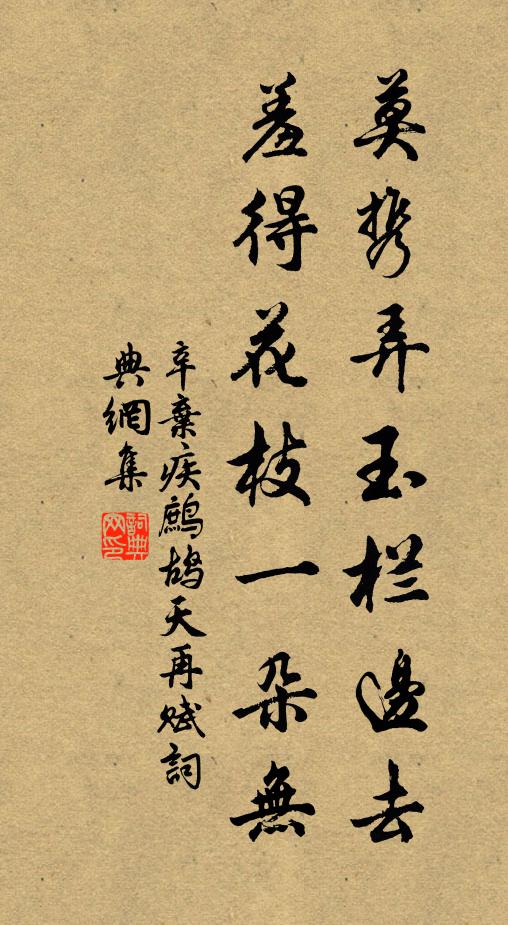 莫携弄玉栏邊去
羞得花枝一朵無
辛棄疾鷓鴣天再赋詞
典網集
詞典
网印